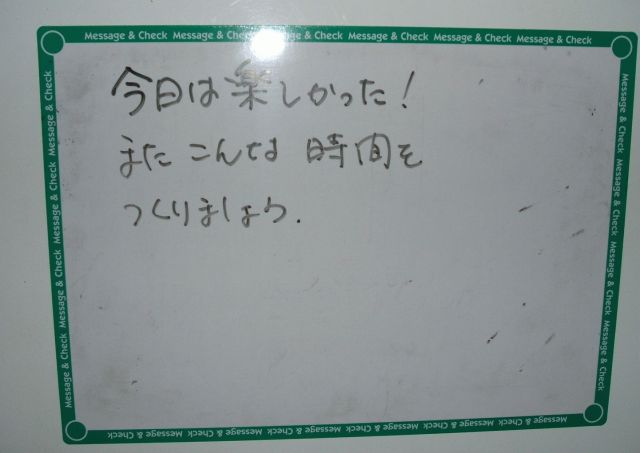 Message & Check Message & Check Message & Check Message & Check Message & Check Message & Check
今日は楽しかった!
また こんな 時間を
つくりましょう.
Message & Check Message & Check Message & Check Message & Check
Message & Check Message & Check Message & Check Message & Check
Message & Check Message & Check Message & Check Message & Check Message & Check Message & Check